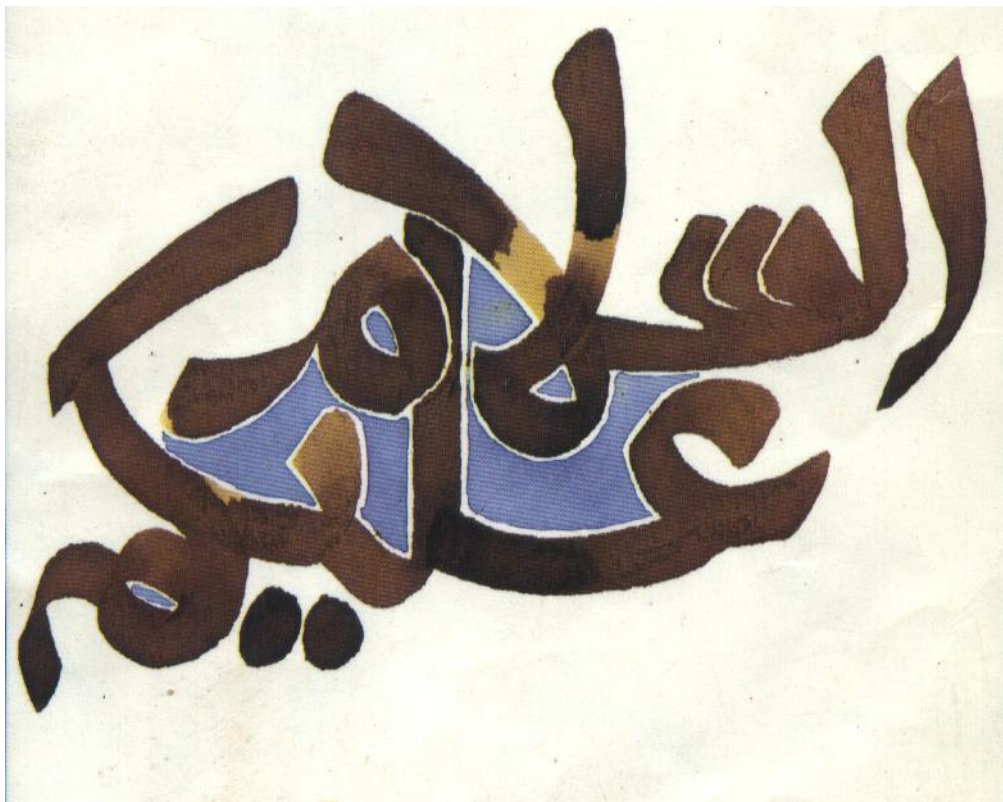 السلام
عليكم